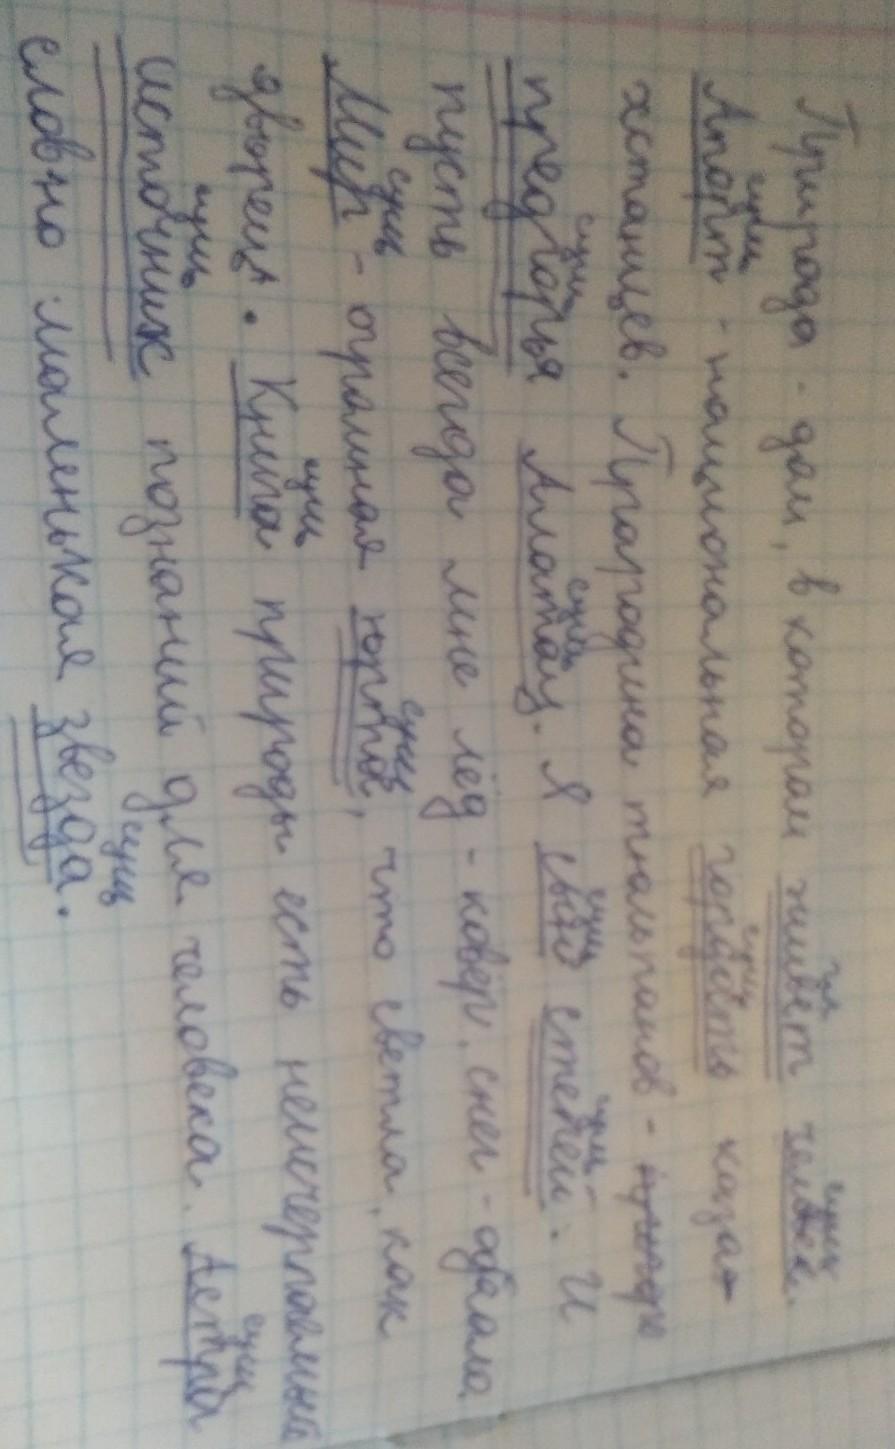 Природа - дом, в котором живет человек.
Апорт - национальная гордость каза-
хстанцев. Прародина тюльпанов -
предгорья Алатау. Я сын степей. И
пусть всегда мне лёд - ковёр, снег - одеяло.
Мир - огромная юрта, что светла, как
дворец. Книга природы есть неисчерпаемый
источник познаний для человека. Астра
словно маленькая звезда.